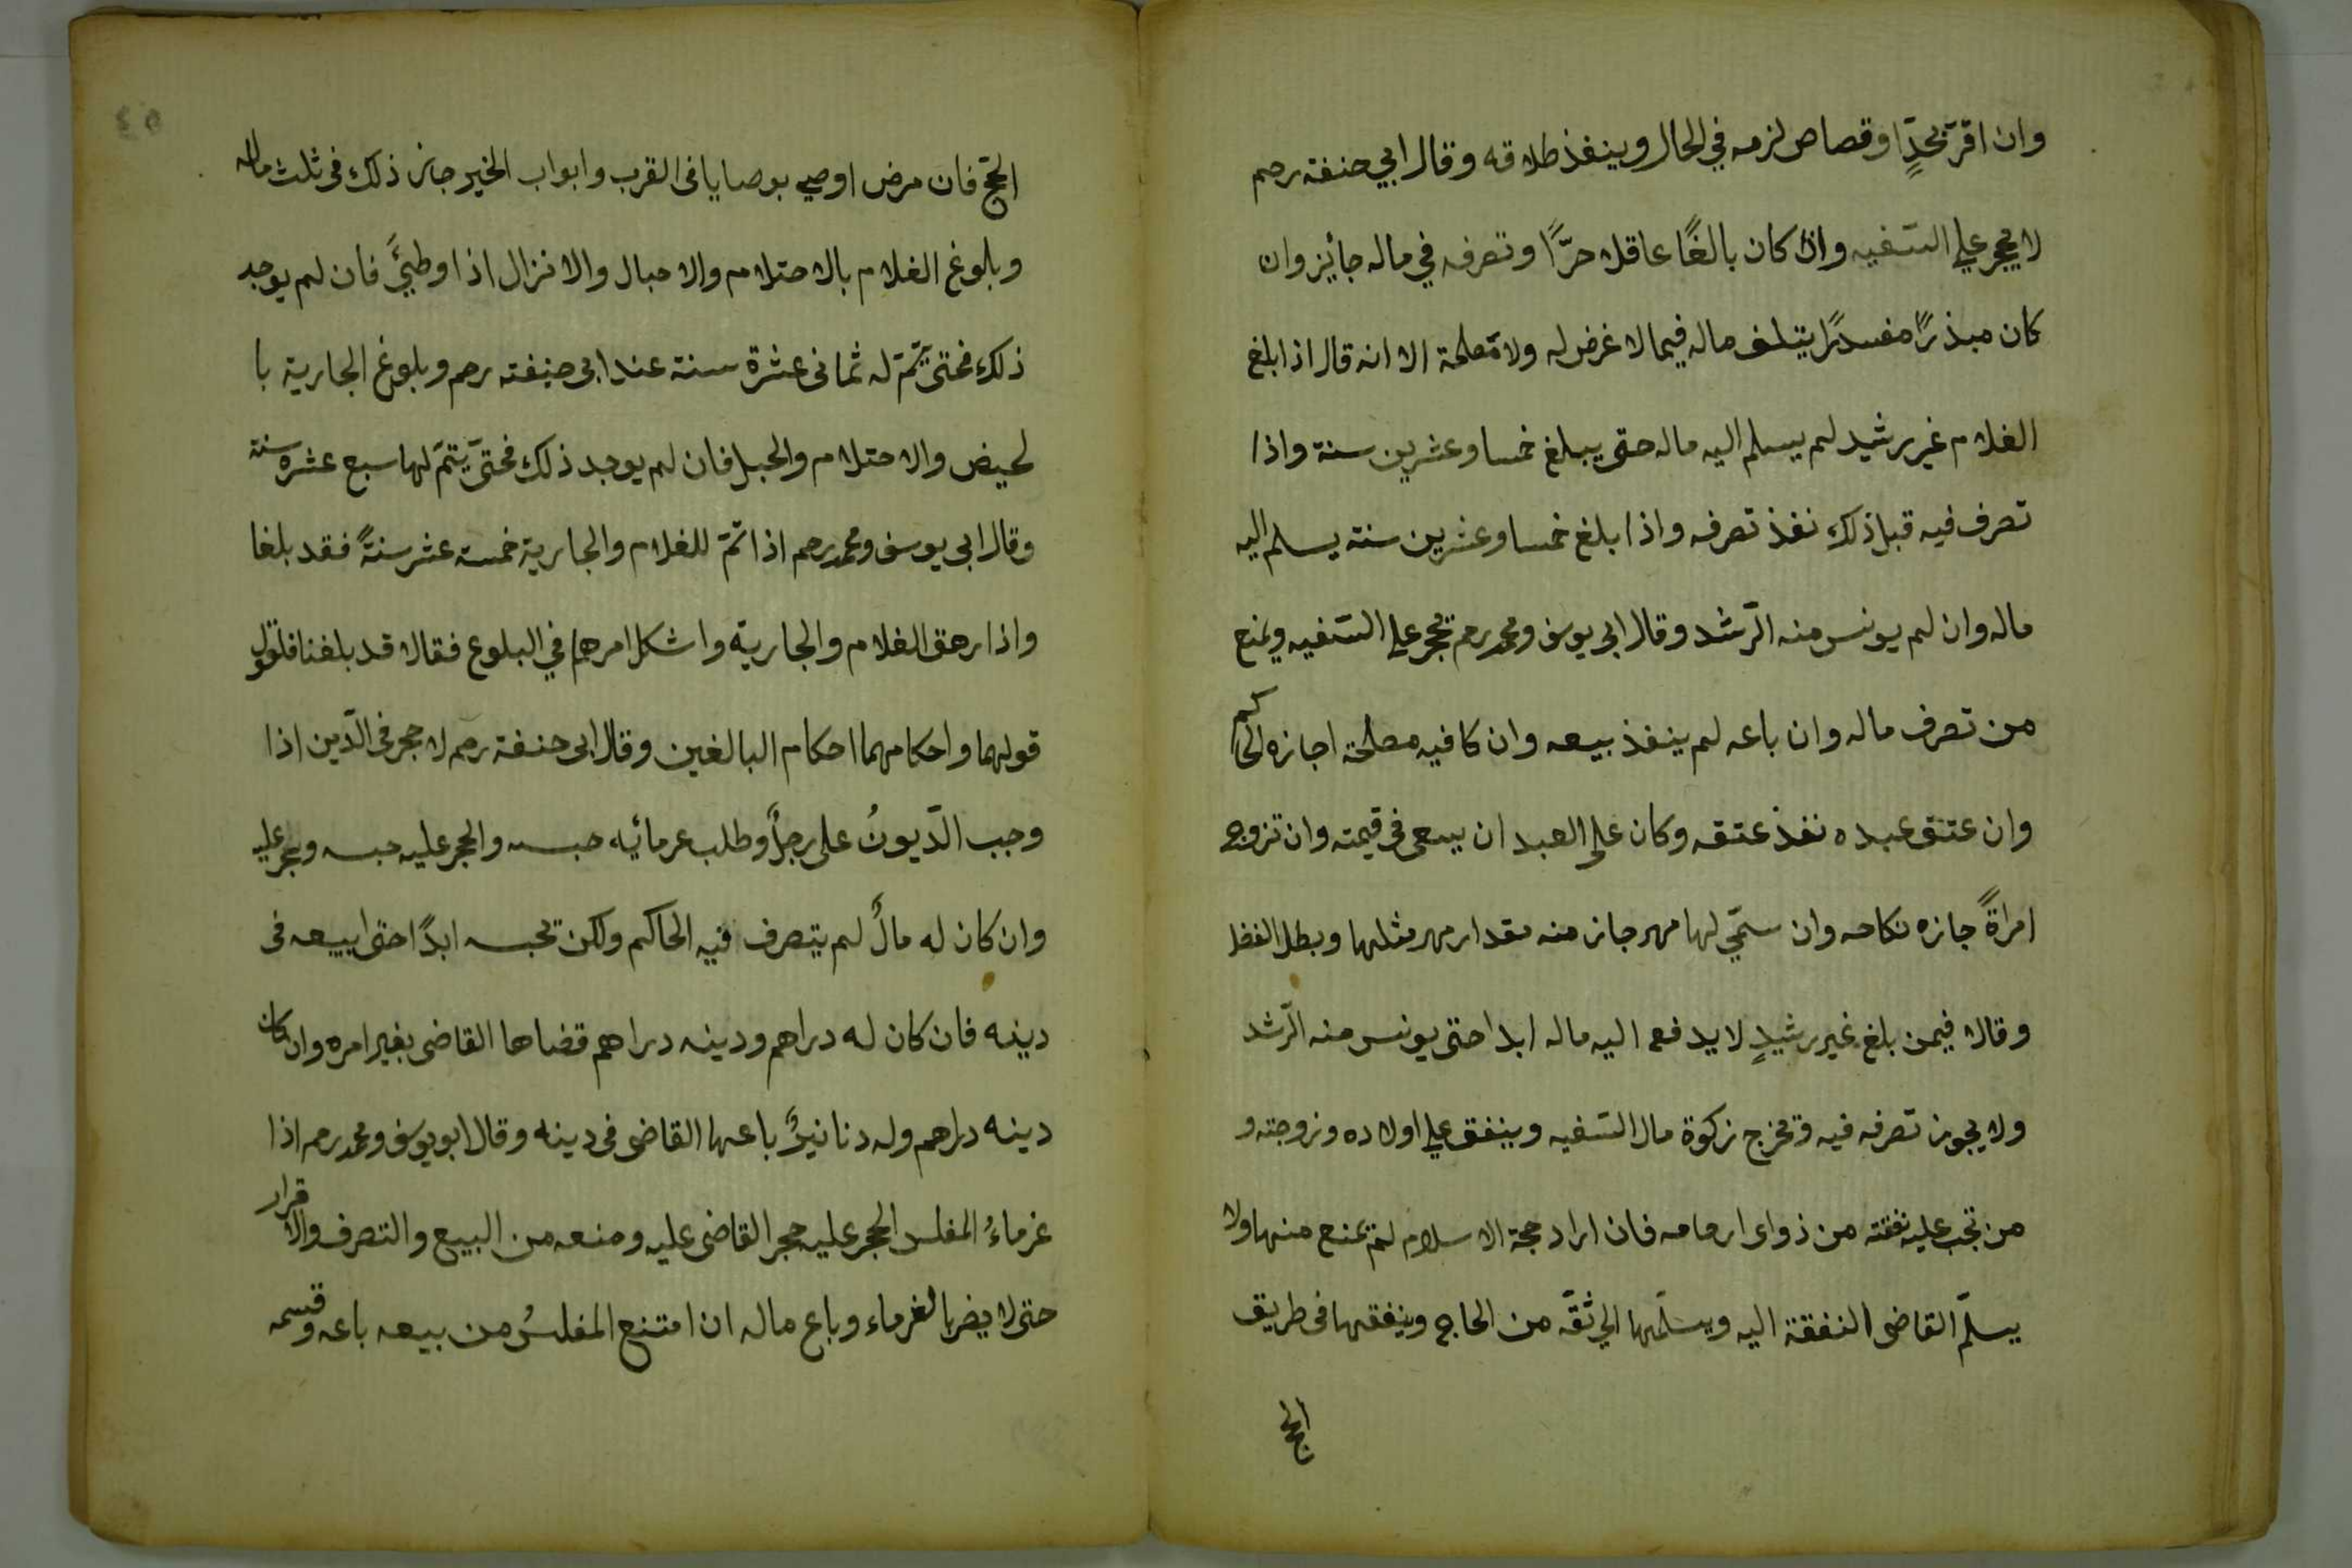 وان اقرّ بحدٍّ او قصاص لزمه في الحال وينفذ طلاقه وقال ابي حنفة رحم
لا يحجر علي السّفيه واذا كان بالغًا عاقلا حرًّا وتصرفه في ماله جأيز وان
كان مبذرًا مفسدًا يتلف ماله فيما لا غرض له ولا مصلحة الا انه قال اذا بلغ
الغلام غير رشيد لم يسلم اليه ماله حتى يبلغ خمسا وعشرين سنة واذا
تصرف فيه قبل ذلك نفذ تصرفه واذا بلغ خمسا وعشرين سنة يسلم اليه
ماله وان لم يونس منه الرّشد وقال ابي يوسف ومحمد رحم يحجر علي السّفيه ويمنع
من تصرف ماله وان باعه لم ينفذ بيعه وان كا فيه مصلحة اجازه الحاكم
وان عتق عبده نفذ عتقه وكان علي العبد ان يسعى في قيمته وان تزوج
امراةً جازه نكاحه وان سمّي لها مهر جاز منه مقدار مهر مثلها وبطل الفضل
وقالا فيمن بلغ غير رشيدٍ لا يدفع اليه ماله ابدا حتى يونس منه الرّشد
ولا يجوز تصرفه فيه وتخرج زكوة مال السّفيه وينفق علي اولاده وزوجته و
من تجب عليه نفقته من ذواى ارحامه فان اراد حجة الاسلام لم يمنع منها ولا
يسلّم القاضى النفقة اليه ويسلّمها الي ثقّه من الحاج وينفقها فى طريق
الحج
٤٥
الحّج فان مرض اوصي بوصايا فى القرب وابواب الخير جاز ذلك فى ثلث ماله
وبلوغ الغلام بالاحتلام والاحبال والانزال اذا وطئَ فان لم يوجد
ذلك فحتى يتمّ له ثمانى عشرة سنة عند ابى حنفته رحم وبلوغ الجارية با
لحيض والاحتلام والحبل فان لم يوجد ذلك فحتىّ يتمّ لها سبع عشره سنة
وقال ابى يوسف ومحمد رحم اذا تمّ للغلام والجارية خمسة عشر سنةً فقد بلغا
واذا رهق الغلام والجارية واشكل امرهما في البلوع فقالا قد بلغنا فلقول
قولهما واحكامهما احكام البالغين وقال ابى حنفة رحم لا حجر فى الدّين اذا
وجب الدّيونُ على رجلٍ وطلب غرمائيه حبسه والحجر عليه حبسه ويحجر عليه
وان كان له مالٌ لم يتصرف فيه الحاكم ولكن تحبسه ابدًا حتى ابيعه فى
دينه فان كان له دراهم ودينه دراهم قضاها القاضى بغير امره وان كان
دينه دراهم وله دنانيرٌ باعها القاضى فى دينه وقال ابو يوسف ومحمد رحم اذا
غرماءُ المفلس الحجر عليه حجر القاضى عليه ومنعه من البيع والتصرف والاقرار
حتى لا يضر بالغرماء وباع ماله ان امتنع المفلسُ من بيعه باعه وقسمه